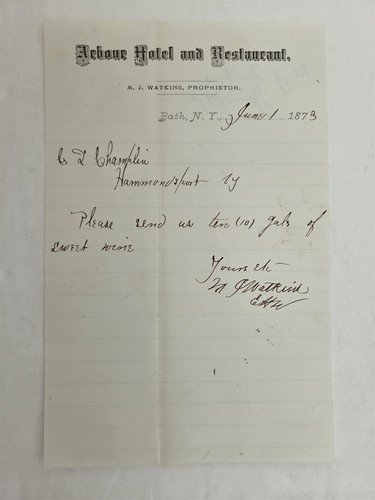 Arbour Hotel and Restaurant,
M. J. WATKINS, PROPRIETOR.
Bath, N. Y., June 1 1873
C D Champlin
Hammondsport Ny
Please send us ten (10) gals of
sweet wine
Yours etc
M J Watkins
EHW